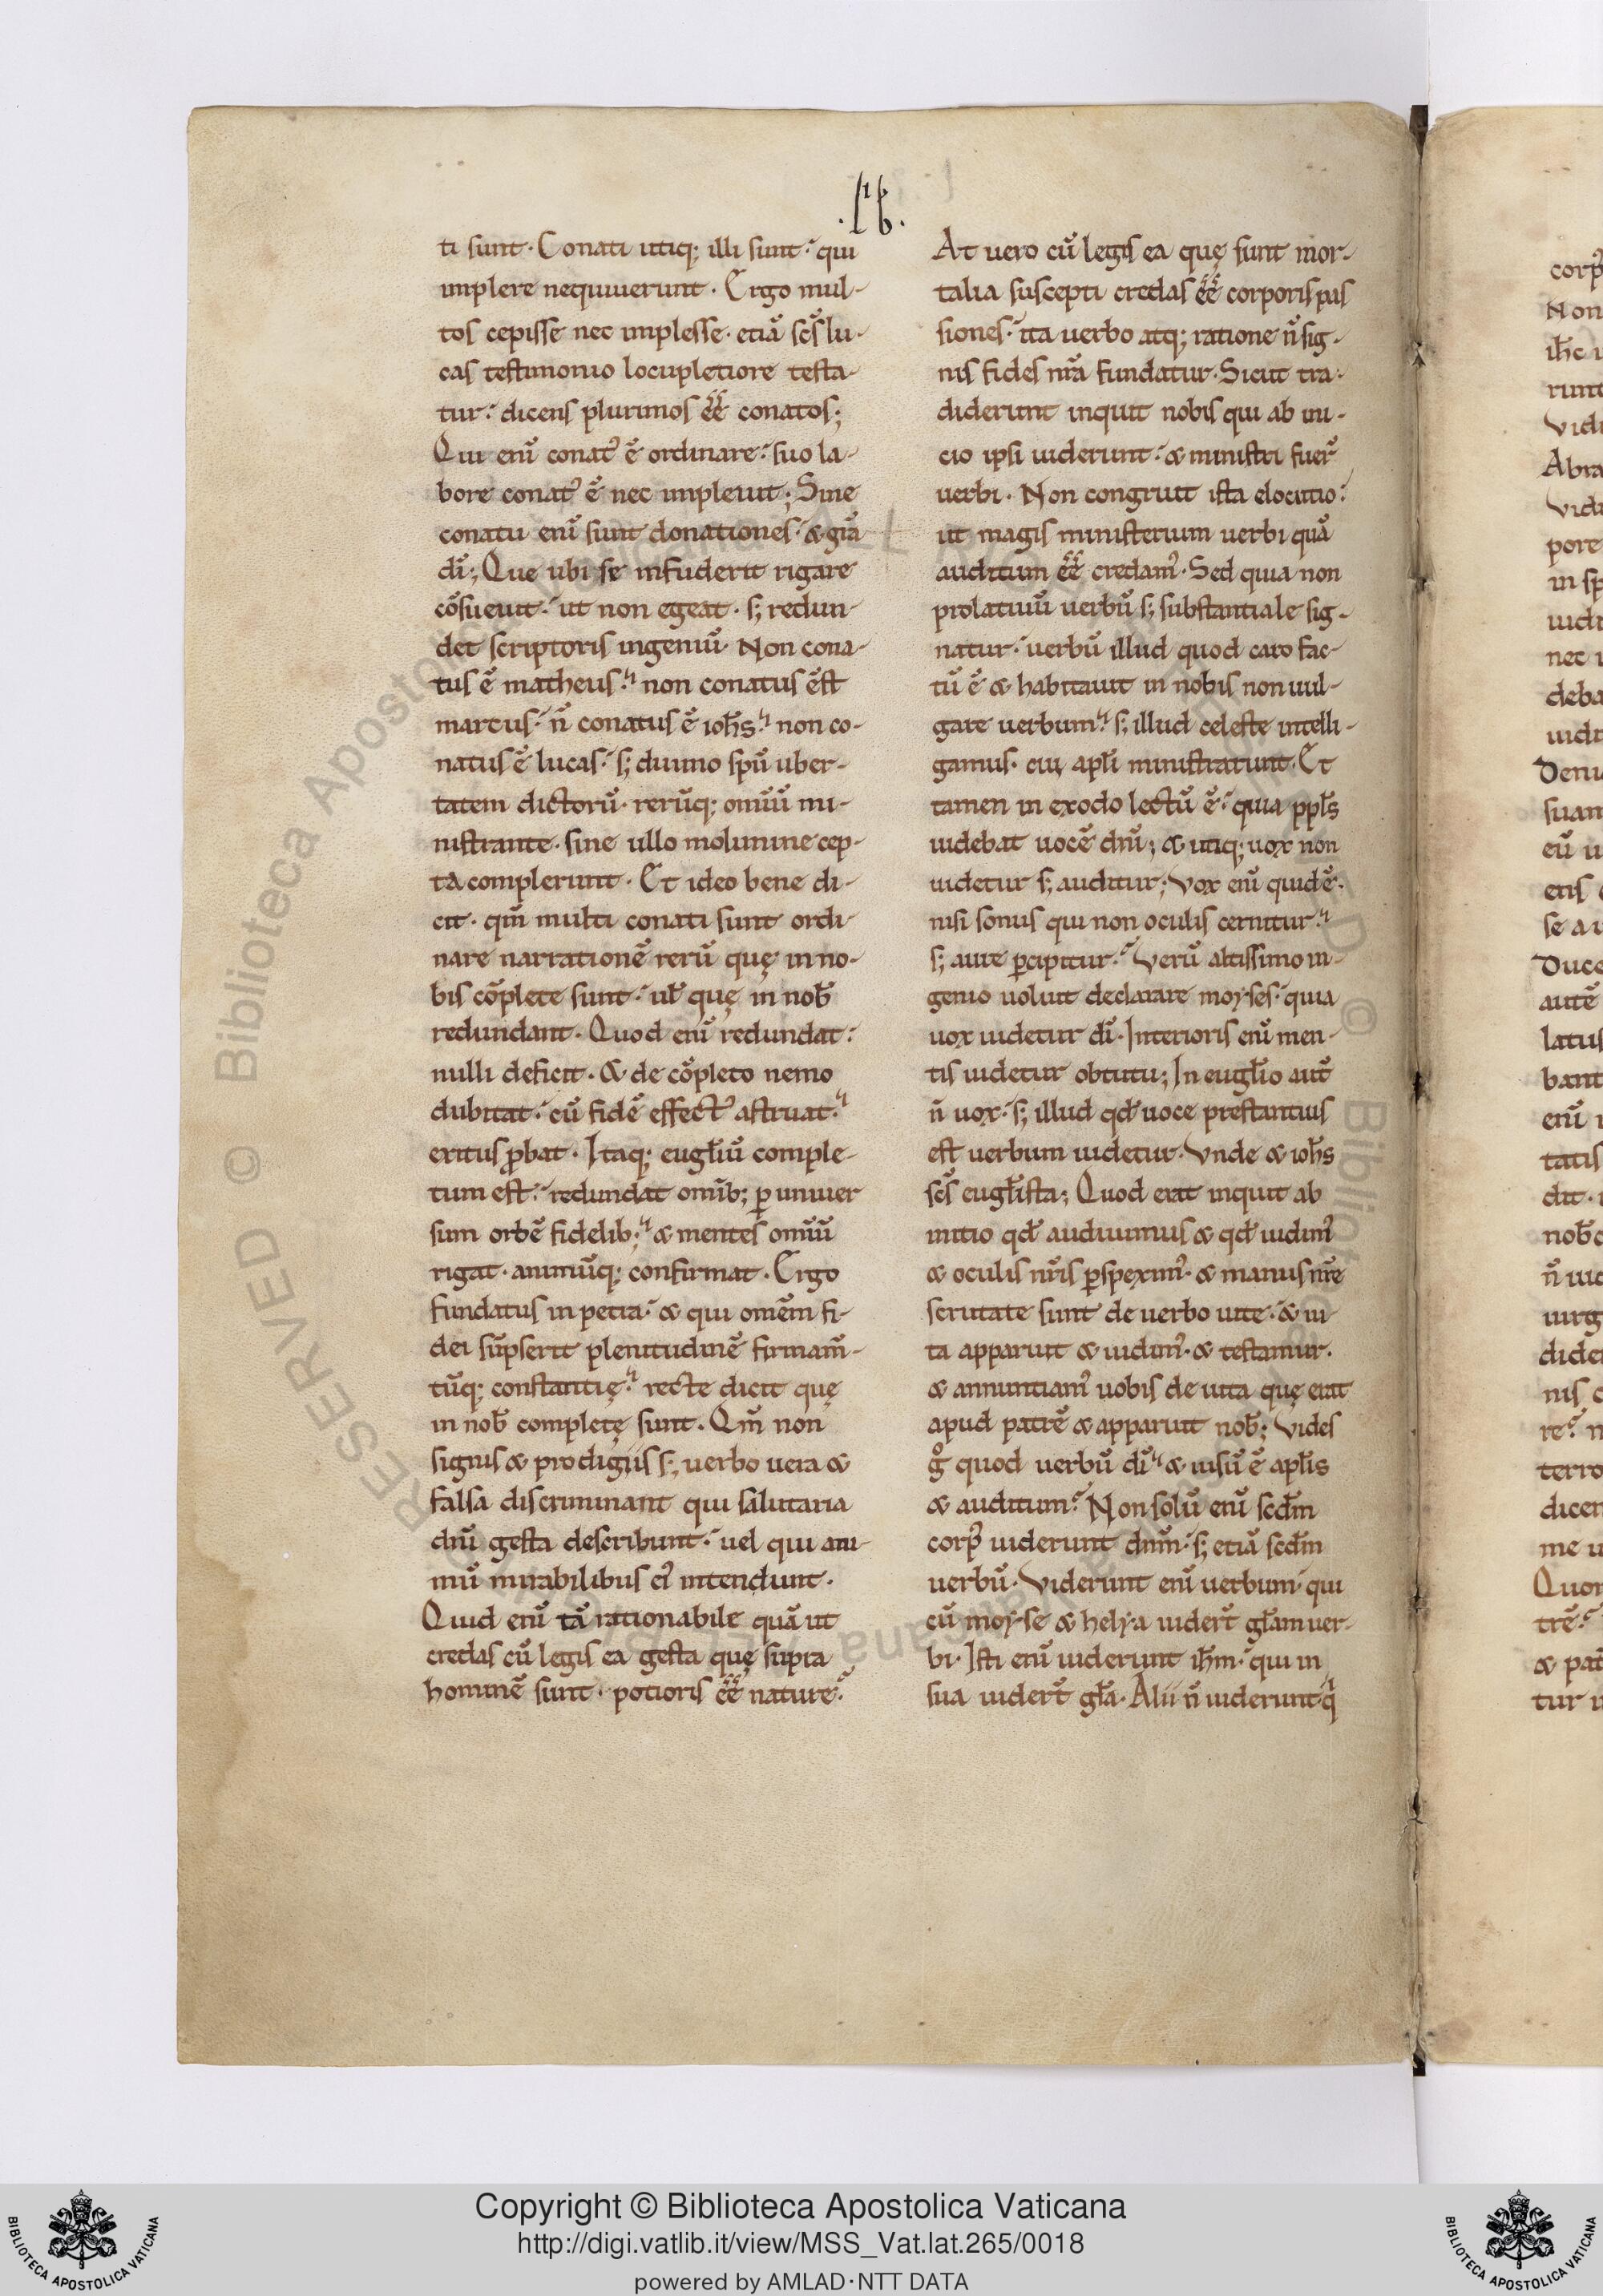 .lib.
ti sunt. Conati utiq; illi sunt. qui
implere nequiuerunt. Ergo mul-
tos cepisse nec implesse. etiā scs̄ lu-
cas testimonio locupletiore testa-
tur. dicens plurimos ēē conatos;
Qui enī conat᷒ ē ordinare. suo la-
bore conat᷒ ē nec impleuit; Sine
conatu enī sunt donationes. & grā
dī; Que ubi se infuderit rigare
cōsueuit. ut non egeat. s; redun-
det scriptoris ingeniū. Non cona-
tus ē matheus. non conatus ēst
marcus. n̄ conatus ē ioh̄s. non co-
natus ē lucas. s; diuino spū uber-
tatem dictorū. rerūq; omīū mi-
nistrante. sine ullo molimine cep-
ta complerunt. Et ideo bene di-
cit. qm̄ multi conati sunt ordi-
nare narrationē rerū quę in no-
bis cōplete sunt. uł quę in nob̄
redundant. Quod enī redundat.
nulli deficit. & de cōpleto nemo
dubitat. cū fidē effect᷒ astruat.
exitus ꝓbat. Itaq; eugl̄iū comple-
tum est. redundat omīb; ꝑ uniuer
sum orbē fidelib; & mentes omīū
rigat. animūq; confirmat. Ergo
fundatus in petra. & qui omēm fi-
dei sūpserit plenitudinē firmam̄-
tūq; constantię. recte dicit quę
in nob̄ completę sunt. Qm̄ non
signis & prodigiis s; uerbo uera &
falsa discriminant qui salutaria
dn̄i gesta describunt. uel qui ani-
mū mirabilibus ei᷒ intendunt.
Quid enī tā rationabile quā ut
credas cū legis ea gesta quę supra
hominē sunt. potioris ēē nature.
At uero cū legis ea quę sunt mor-
talia suscepti credas ēē corporis pas
siones. ita uerbo atq; ratione n̄ sig-
nis fides nr̄a fundatur. Sicut tra-
diderunt inquit nobis qui ab ini-
cio ipsi uiderunt. & ministri fuer̄
uerbi. Non congruit ista elocutio.
ut magis ministerium uerbi quā
auditum ēē credam᷒. Sed quia non
prolatiuū uerbū s; substantiale sig-
natur. uerbū illud quod caro fac-
tū ē & habitauit in nobis non uul-
gare uerbum. s; illud celeste intelli-
gamus. cui apl̄i ministrarunt. Et
tamen in exodo lectū ē. quia ppl̄s
uidebat uocē dn̄i; & utiq; uox non
uidetur s; auditur; Vox enī quid ē.
nisi sonus qui non oculis cernitur.
s; aure ꝑcipitur. Verū altissimo in-
genio uoluit declarare moyses. quia
uox uidetur dī. Interioris enī men-
tis uidetur obtutu; In eugl̄io aut̄
n̄ uox. s; illud qd̄ uoce prestantius
est uerbum uidetur. Vnde & ioh̄s
scs̄ eugl̄ista; Quod erat inquit ab
initio qd̄ audiuimus & qd̄ uidim᷒
& oculis nr̄is ꝑspexim᷒. & manus nr̄e
scrutate sunt de uerbo uite. & ui-
ta apparuit & uidim᷒. & testamur.
& annuntiam᷒ uobis de uita quę erat
apud patrē & apparuit nob̄; Vides
g̊ quod uerbū dī & uisū ē apl̄is
& auditum. Non solū enī scd̄m
corp᷒ uiderunt dnm̄. s; etiā scd̄m
uerbū. Viderunt enī uerbum. qui
cū moyse & helya uider̄t gl̄am uer-
bi. Isti enī uiderunt ih̄m. qui in
sua uider̄t gl̄a. Alii n̄ uiderunt q̇
Copyright © Biblioteca Apostolica Vaticana
http://digi.vatlib.it/view/MSS_Vat.lat.265/0018
powered by AMLAD·NTT DATA
BIBLIOTECA APOSTOLICA VATICANA
BIBLIOTECA APOSTOLICA VATICANA